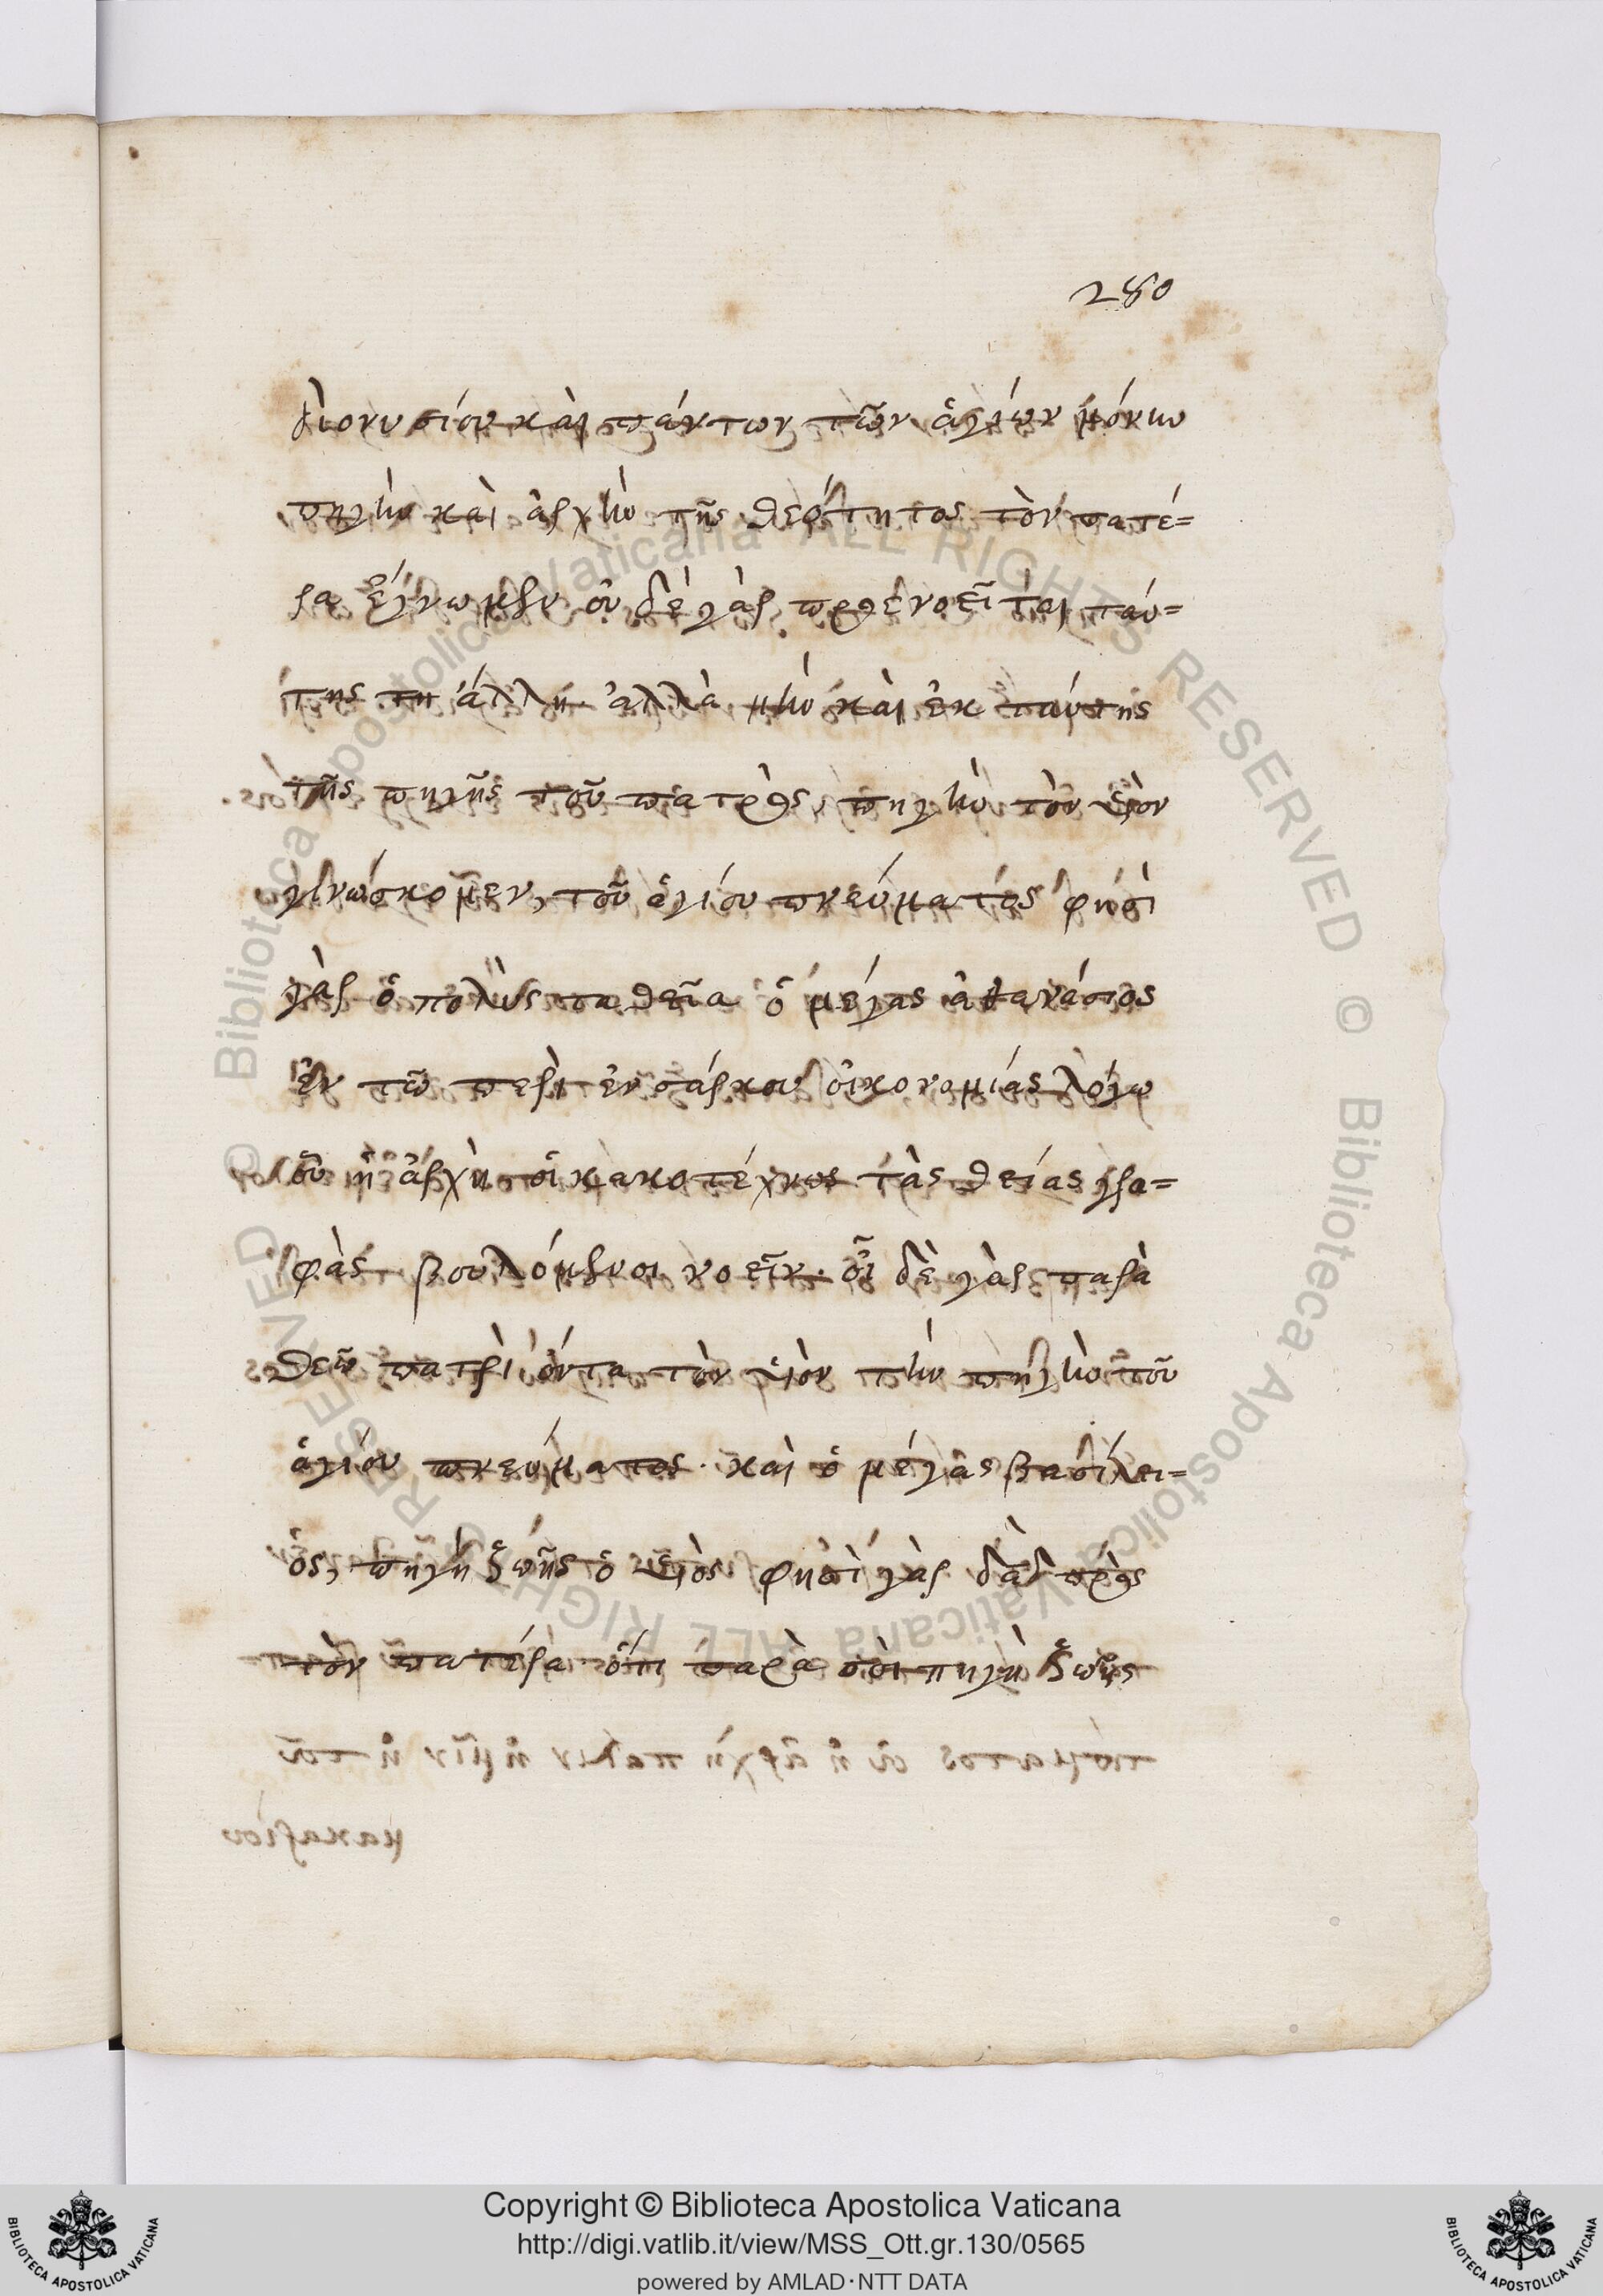 280
διονυσίου καὶ πάντων τῶν ἁγίων μόνην
πηγὴν καὶ ἀρχὴν τῆς θεότητος τὸν πατέ=
ρα ἔγνωμεν οὐδὲ γὰρ προενοεῖται ταύ=
της τη ἄλλη. ἀλλὰ μὴν καὶ ἐκ ταύτης
τῆς πηγῆς τοῦ πατρὸς, πηγὴν τὸν υἱὸν
γινώσκομεν, τοῦ ἁγίου πνεύματος φησὶ
γὰρ ὁ πολὺς τα θεῖα ὁ μέγας ἀθανάσιος
ἐν τῶ περὶ ἐνσάρκου οἰκονομίας λόγω
οὗ ἡ ἀρχὴ οἱ κακοτέχνως τὰς θείας γρα=
φὰς βουλόμενοι νοεῖν. οἶδε γὰρ παρὰ
θεῶ πατρὶ ὄντα τὸν υἱὸν τὴν πηγὴν τοῦ
ἁγίου πνεύματος. καὶ ὁ μέγας βασίλει=
ος, πηγὴ ζωῆς ὁ υἱὸς φησὶ γὰρ δαδ πρὸς
τὸν πατέρα ὅτι παρὰ σοὶ πηγὴ ζωῆς
Copyright © Biblioteca Apostolica Vaticana
http://digi.vatlib.it/view/MSS_Ott.gr.130/0565
powered by AMLAD·NTT DATA
BIBLIOTECA APOSTOLICA VATICANA
BIBLIOTECA APOSTOLICA VATICANA
© Biblioteca Apostolica Vaticana ALL RIGHTS RESERVED
© Biblioteca Apostolica Vaticana ALL RIGHTS RESERVED